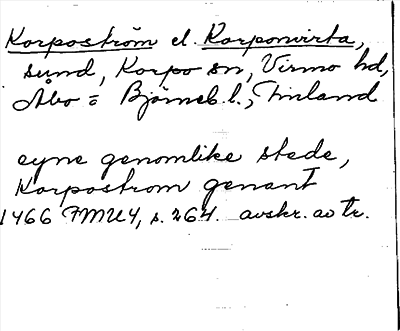 Korpoström el. Korponvirta,
sund, Korpo sn, Virmo hd,
Åbo = Björneb. l., Finland
eyne genomlike stede,
Korpostrom genant
1466 FMU 4, s. 264. avskr. av tr.